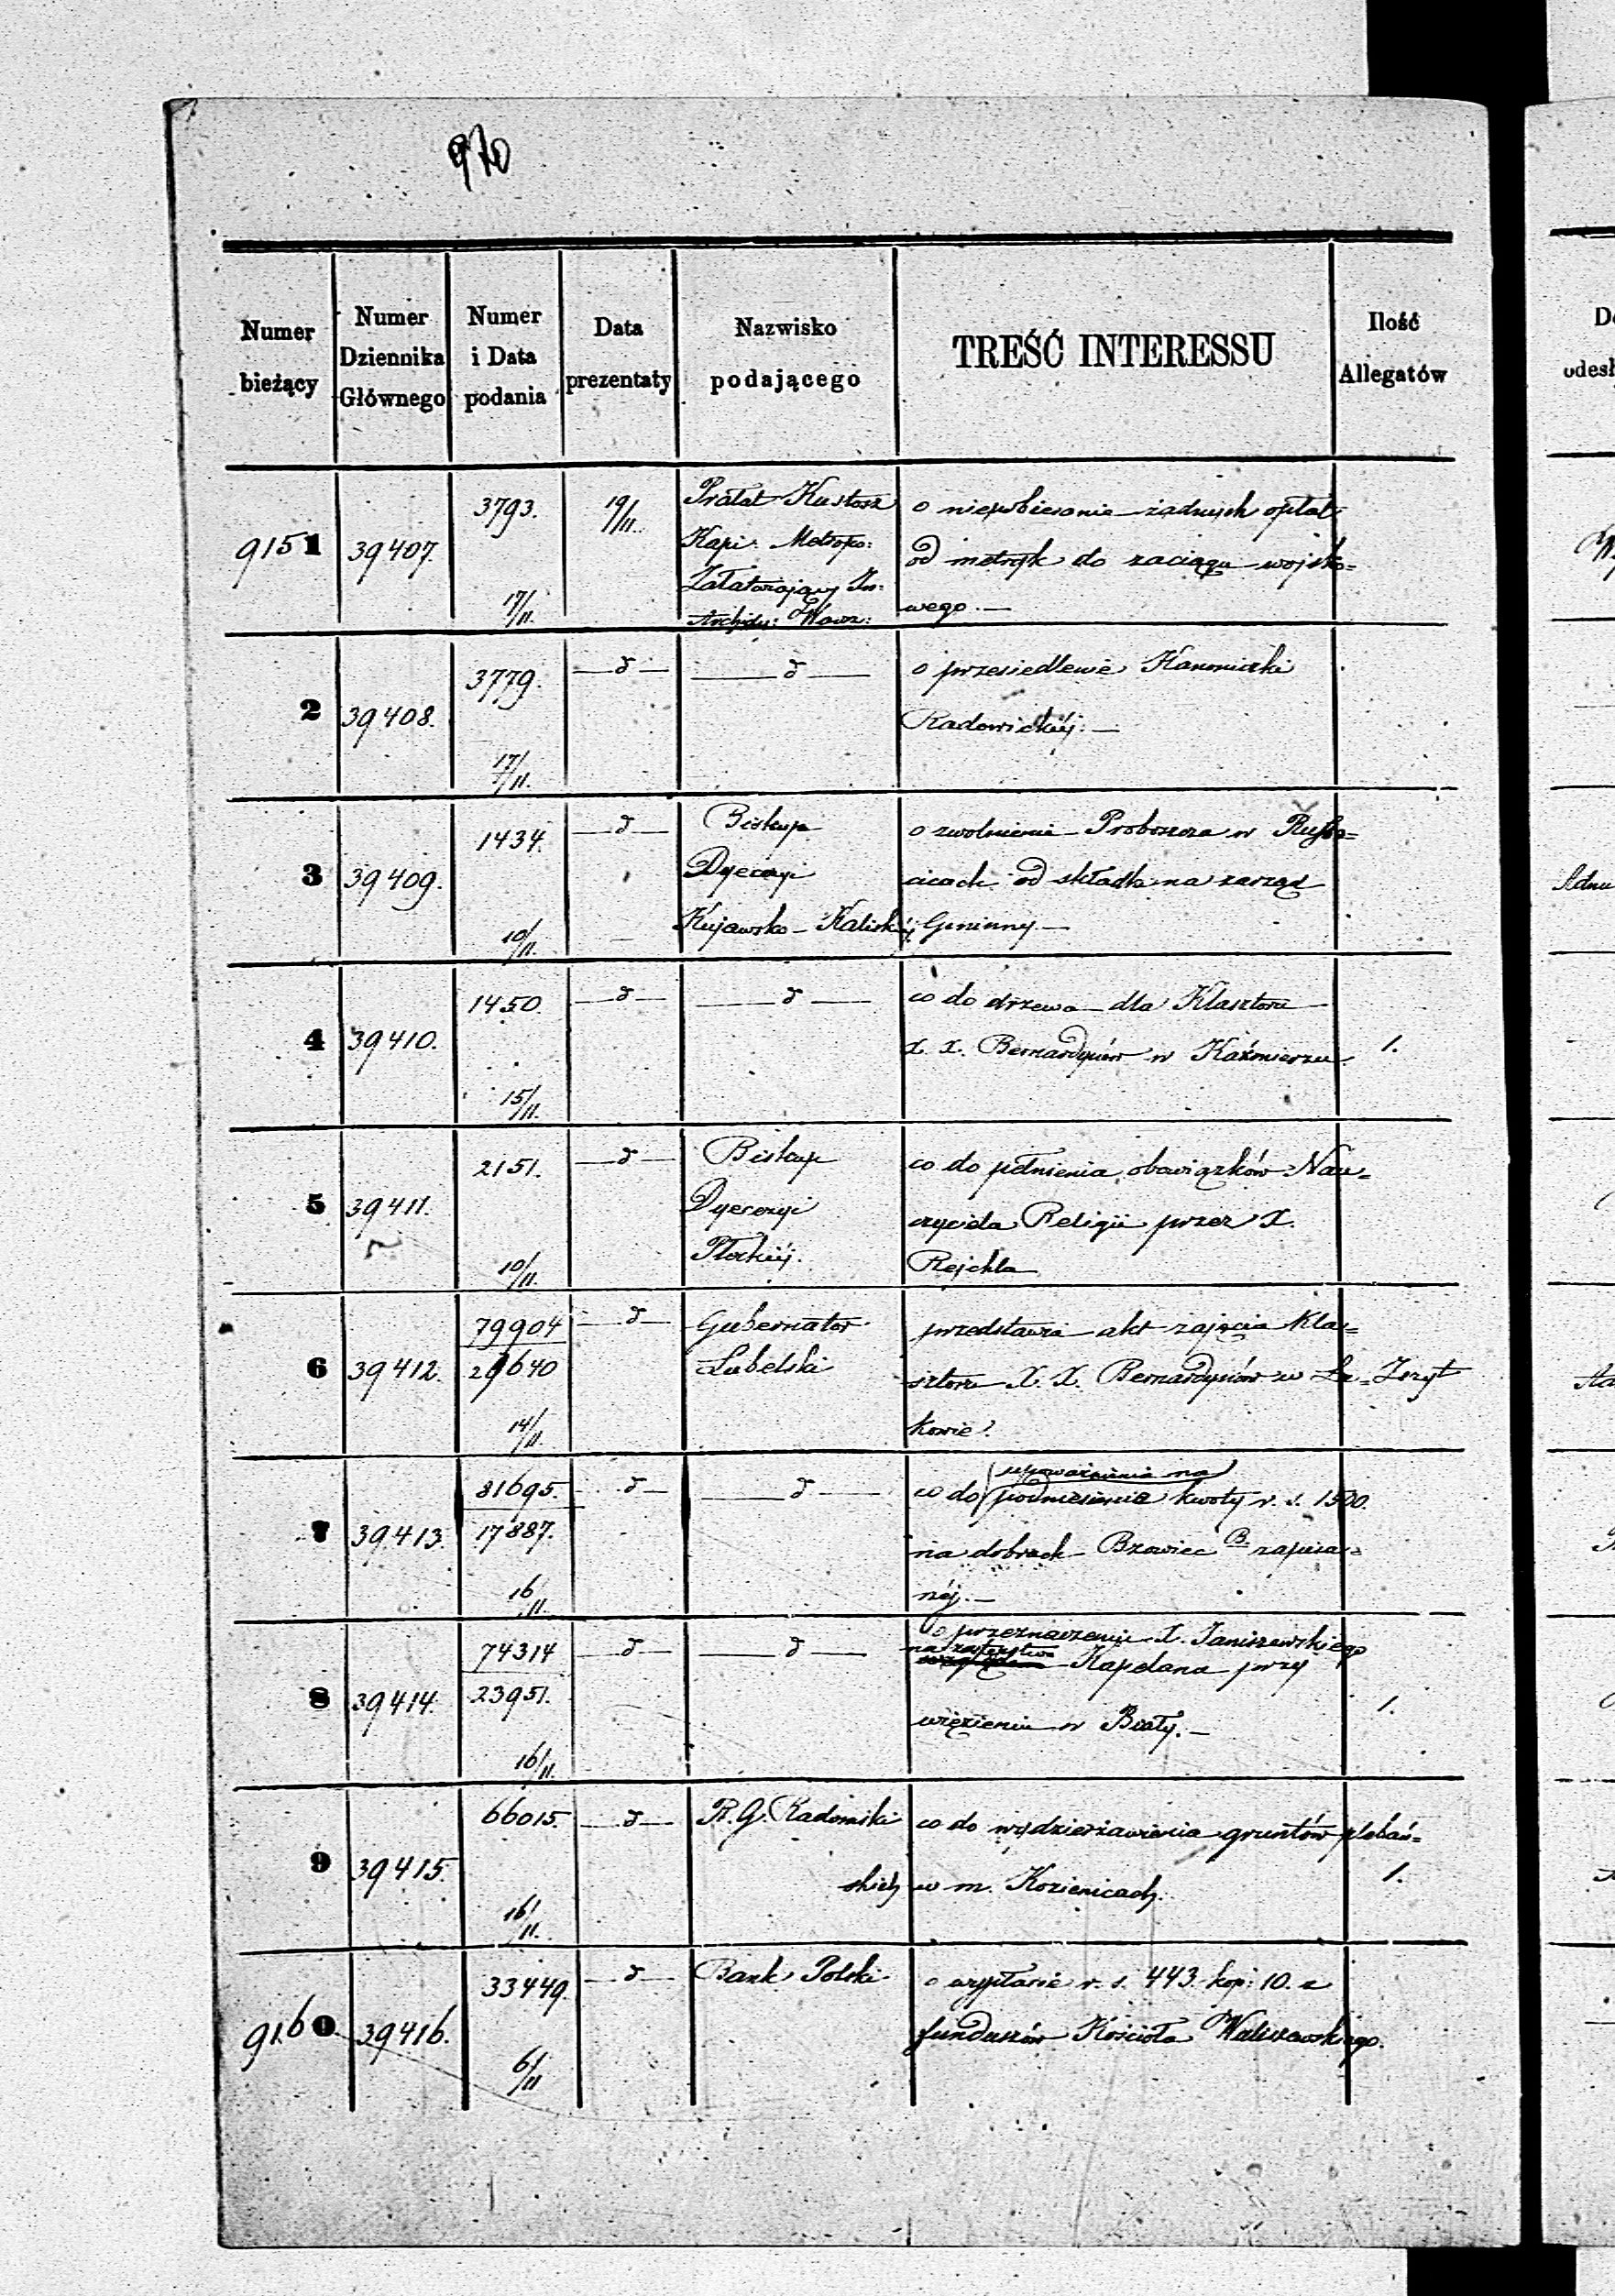 970
Numer bieżący
Numer Dziennika Głównego
Numer i Data podania
Data prezentaty
Nazwisko podającego
TREŚĆ INTERESSU
Ilość Allegatów
9151 39407. 3793. 17/11. 19/11.
Prałat Kustosz
Kapi: Metropo:
Załatwiający In:
Archidy: Warsz:
o niepobieranie żadnych opłat
od metryk do zaciągu wojsko=
wego.—
2 39408. 3779. 17/11. —d— —d—
o przesiedlenie Kanoniczki
Radowickiéj.—
3 39409. 1434. 10/11. —d—
Biskup
Dyecezyi
Kujawsko-Kaliskiéj
o zwolnienie Proboszcza w
cicach od składki na zarząd
Gminny.—
4 39410. 1450. 15/11. —d— —d—
co do drzewa dla Klasztoru
X. X. Bernardynów w Kaźmierzu.
1.
5 39411. 2151. 10/11. —d—
Biskup
Dyecezyi
Płockiéj.
co do pełnienia obowiązków Nau=
czyciela Religii przez X.
Rejchla
6 39412. 79904 29640 14/11. —d—
Gubernator
Lubelski
przedstawia akt zajęcia Kla=
sztoru X. X. Bernardynów w Łu=
kowie.
Zszyt
7 39413. 81695. 17887. 16/11. —d— —d—
upoważnienia na
co do podniesienia kwoty r. s. 1500.
na dobrach Brzowiec B. zapisa=
néj.—
8 39414. 74314 23951. 16/11. —d— —d—
o przeznaczenie X. Janiszewskiego
na zastępstwo Kapelana przy
więzieniu w Biały.—
1.
9 39415. 66015. 16/11. —d—
R. G. Radomski
co do wydzierżawienia gruntów plebań=
skich w m. Kozienicach.
1.
9160 39416. 33449. 6/11 —d—
Bank Polski
o wypłacie r. s. 443. kop: 10. z
funduszów Kościoła Waliszewskiego.